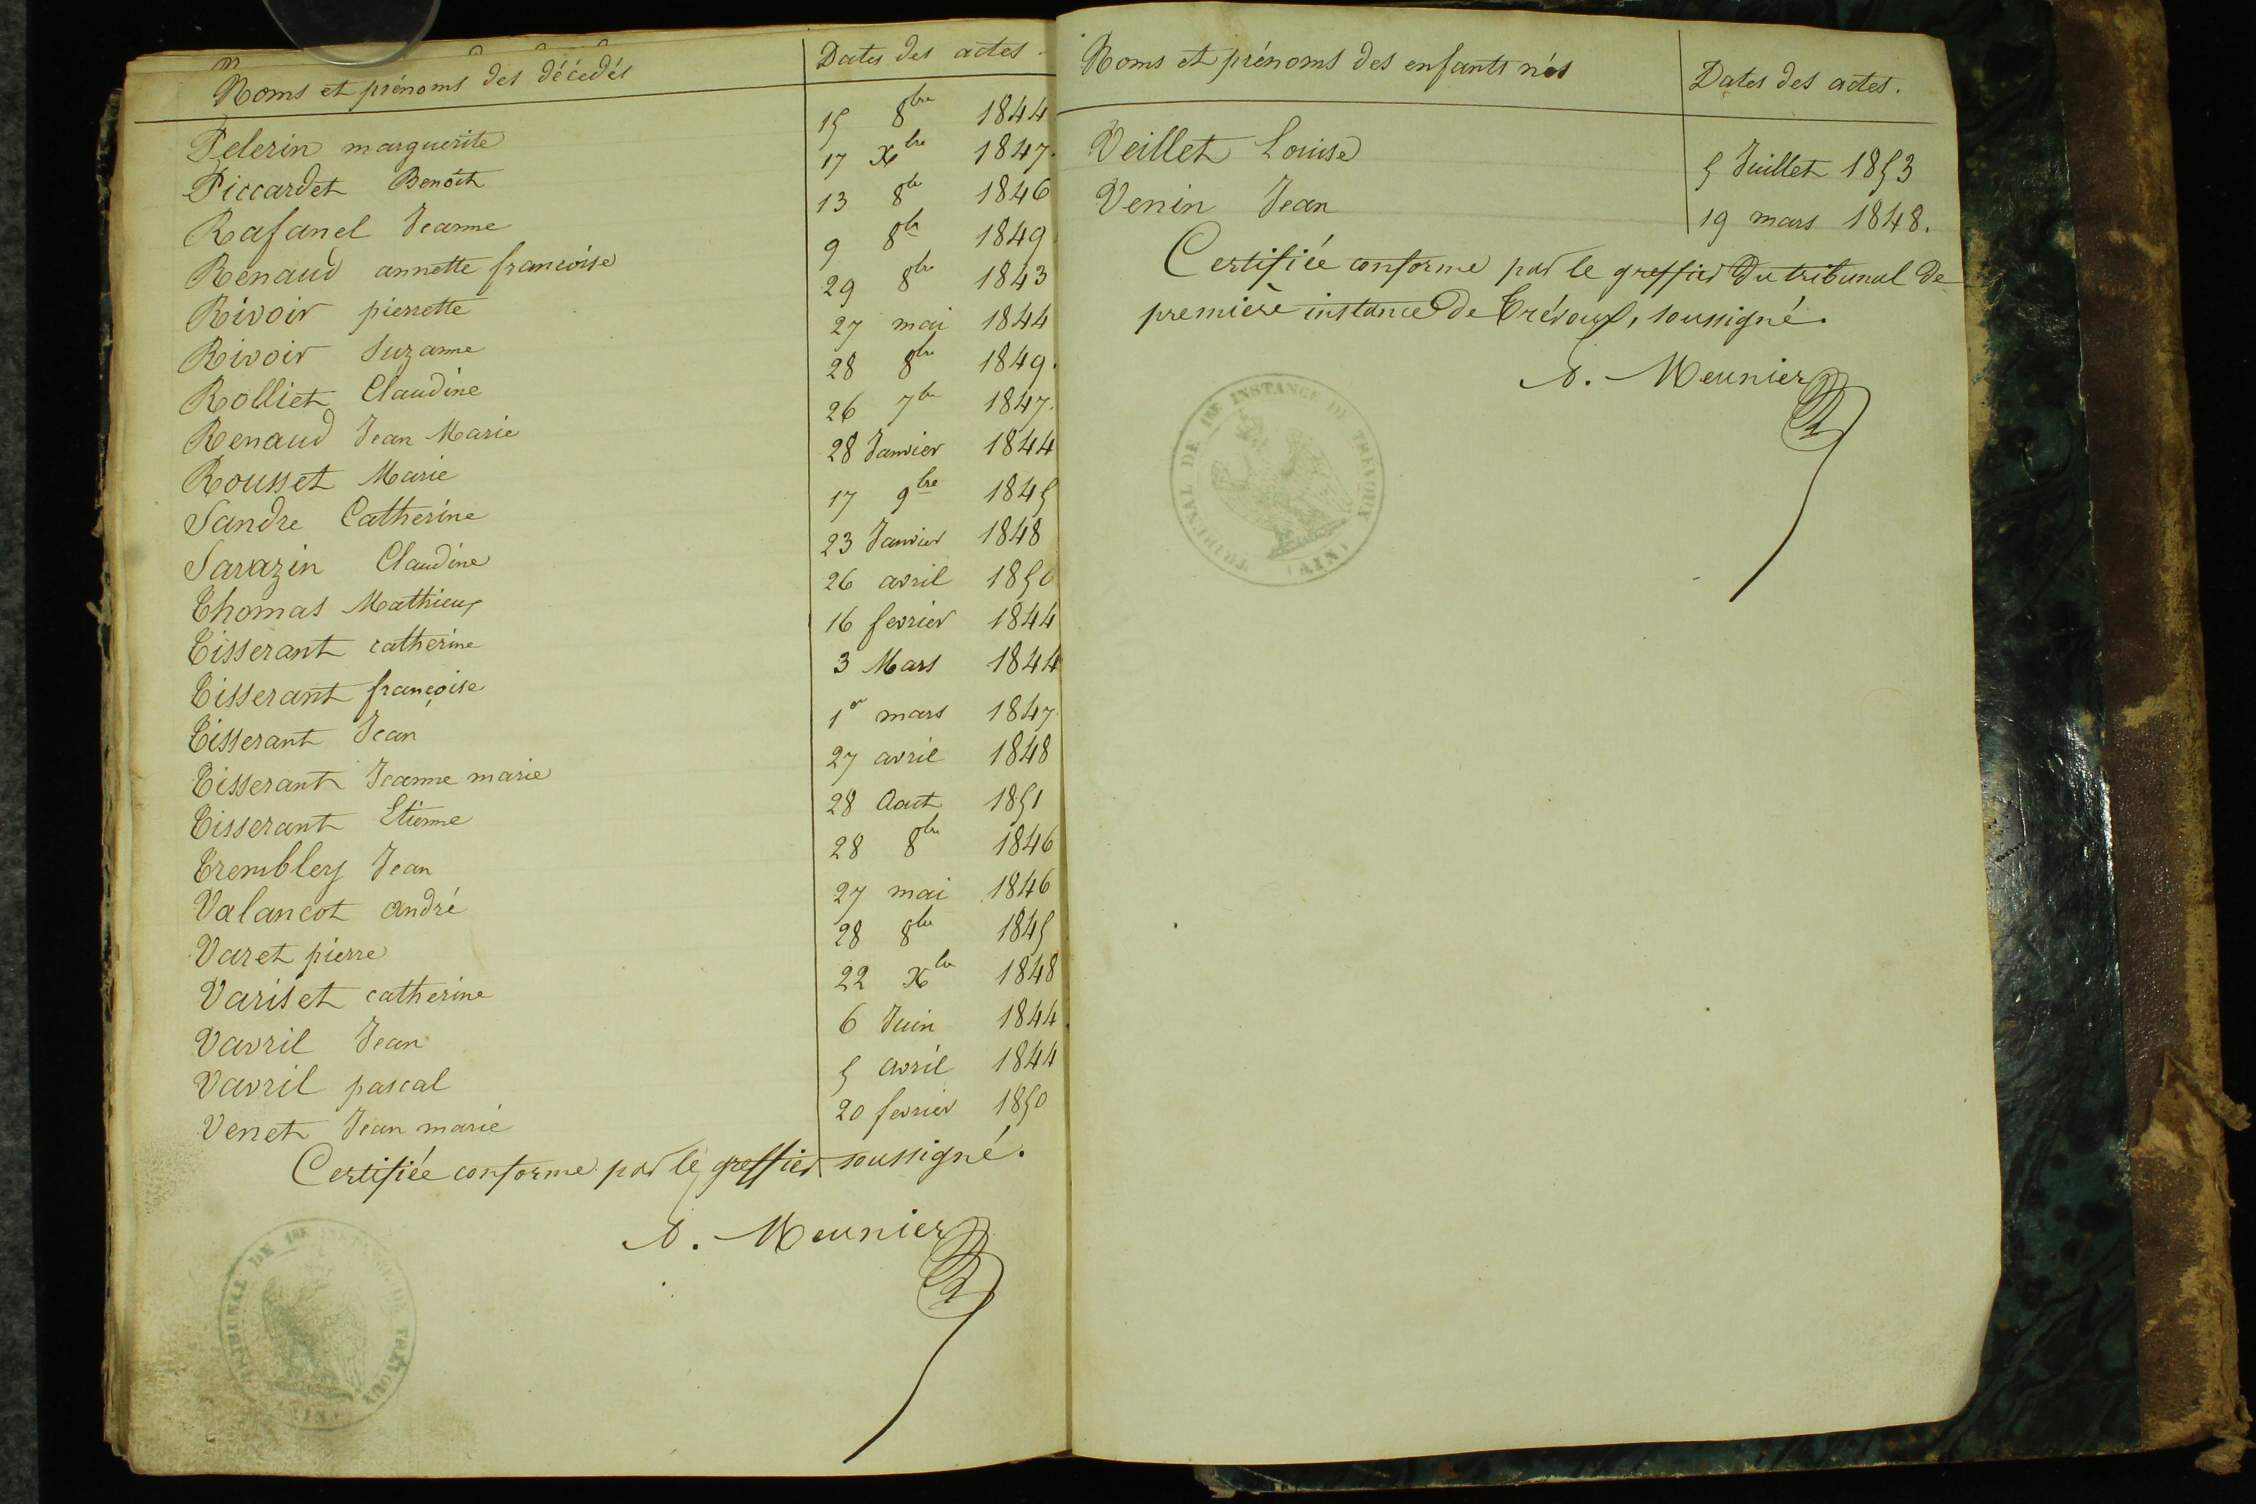 Noms et prénoms des décédés Dates des actes
Pelerin marguerite 15 8bre 1844
Piccardet Benoit 17 Xbre 1847.
Rafanel Jeanne 13 8bre 1846
Renaud annette francoise 9 8bre 1849
Rivoir pierrette 29 8bre 1843
Rivoir Suzanne 27 mai 1844
Rolliet Claudine 28 8bre 1849.
Renaud Jean Marie 26 7bre 1847.
Rousset Marie 28 Janvier 1844
Sandre Catherine 17 9bre 1845
Sarazin Claudine 23 Janvier 1848
Thomas Mathieux 26 avril 1850
Tisserant catherine 16 fevrier 1844
Tisserant françoise 3 Mars 1844
Tisserant Jean 1er mars 1847
Tisserant Jeanne marie 27 avril 1848
Tisserant Etienne 28 Aout 1851
Trembley Jean 28 8bre 1846
Valancot andré 27 mai 1846
Varet pierre 28 8bre 1845
Variset catherine 22 Xbre 1848
Vavril Jean 6 Juin 1844
Vavril pascal 5 avril 1844
Venet Jean marie 20 fevrier 1850
Certifiée conforme par le greffier soussigné.
A. Meunier
TRIBUNAL DE 1ERE INSTANCE DE TREVOUX
(AIN)
Noms et prénoms des enfants nés Dates des actes.
Veillet Louise 5 Juillet 1853
Venin Jean 19 mars 1848.
Certifiée conforme par le greffier du tribunal de
première instance de Trévoux, soussigné.
A. Meunier
TRIBUNAL DE 1ERE INSTANCE DE TREVOUX
(AIN)